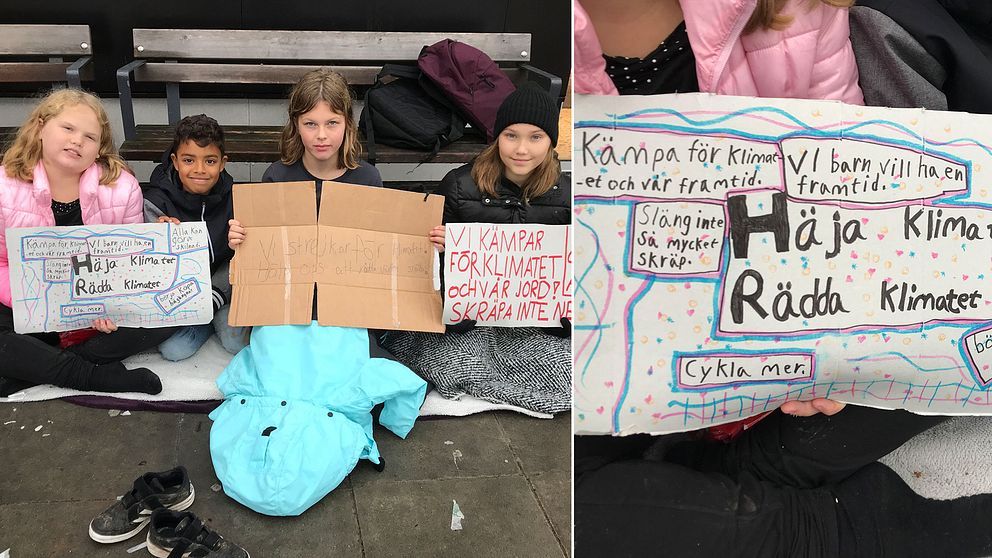 Kämpa för klimat
-et och vår framtid.
Vi barn vill ha en
framtid.
Släng inte
så mycket
skräp.
Häja Klimatet
Rädda Klimatet
Cykla mer.
Alla kan
göra
skillnad
Vi strejkar för klimatet!
VI KÄMPAR
FÖR KLIMATET
OCH VÅR JORD!
SKRÄPA INTE NE
Kämpa för Klimat
-et och vår framtid.
VI barn vill ha en
framtid.
Släng inte
så mycket
skräp.
Häja Klimat
Rädda Klimatet
Cykla mer.
bö